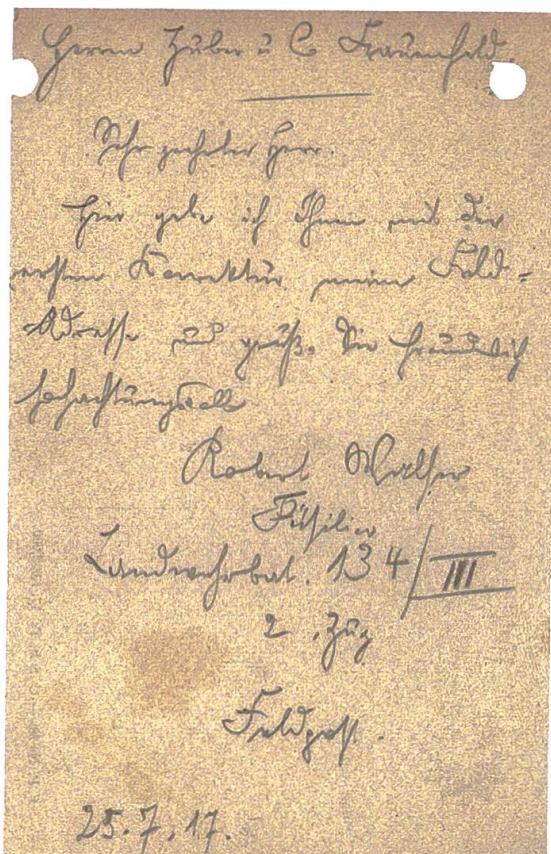 Herrn Huber u Co Frauenfeld.
Sehr geehrter Herr.
Hier gebe ich Ihnen mit der
ersten Korrektur meine Feld-
Adresse und grüße Sie freundlich
hochachtungsvoll
Robert Walser
Füsilier
Landwehrbat. 134/III
2. Zug
Feldpost.
25.7.17.